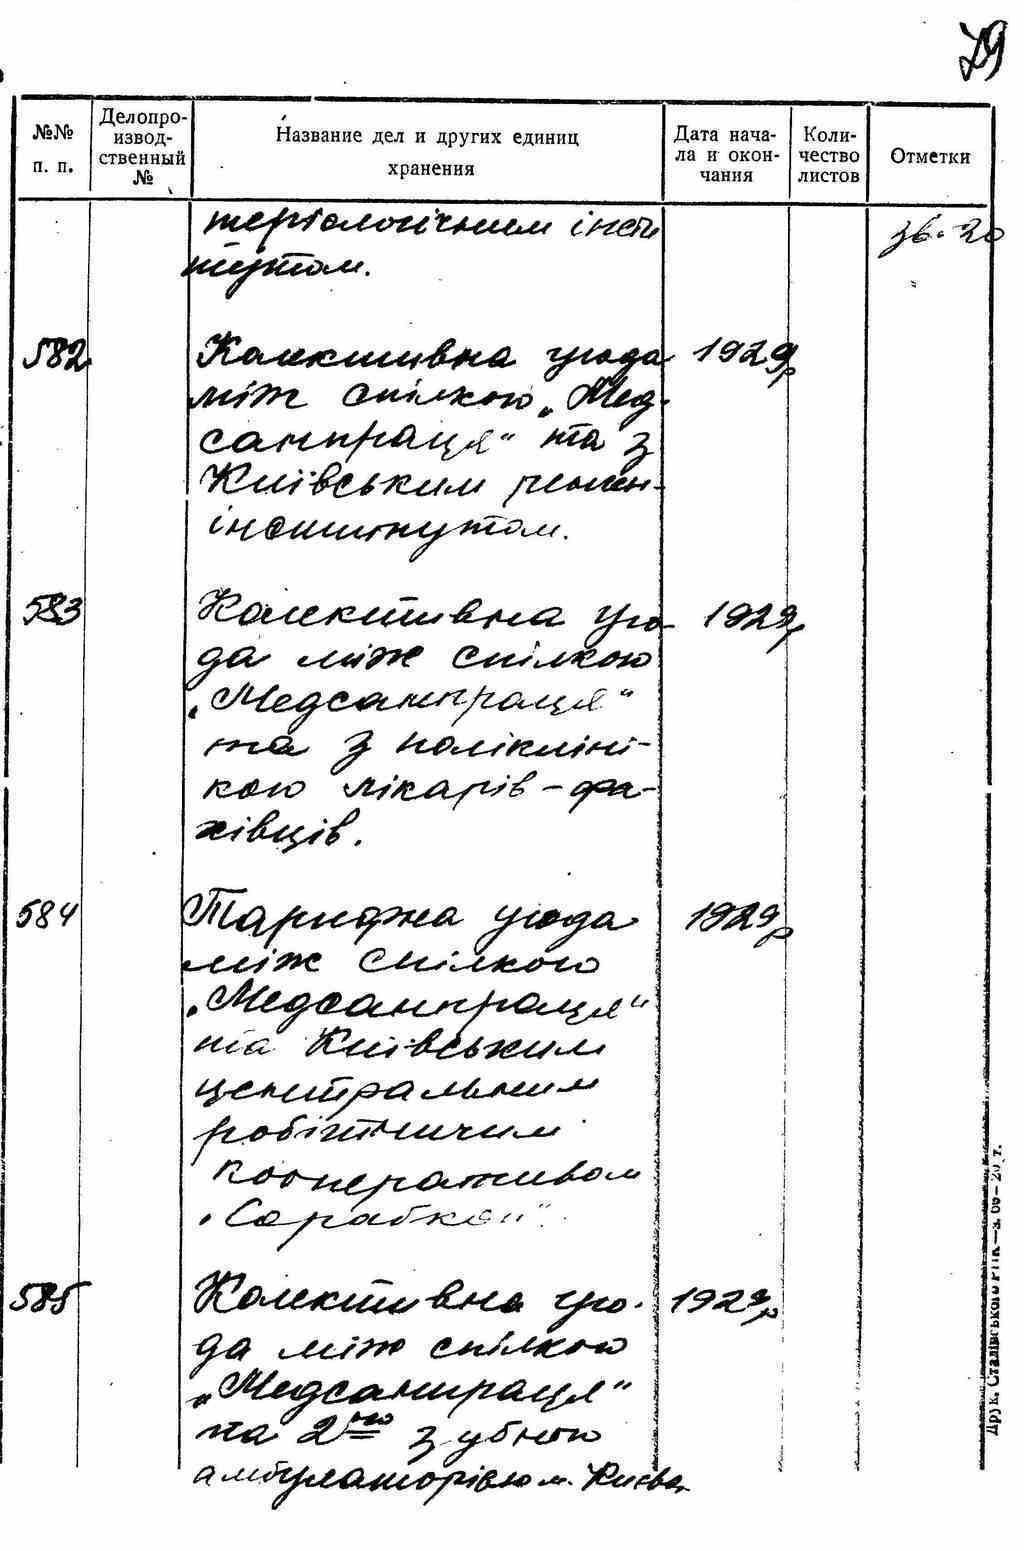 79
№№ п. п.
Делопро-
извод-
ственный
№
Название дел и других единиц
хранения
Дата нача-
ла и окон-
чания
Коли-
чество
листов
Отметки
теріологічним інсти
тутом.
зв. 20
582
Колективна угода
між спілкою „Мед-
санпраця“ та з
Київським
інститутом.
1929р
583
Колективна уго-
да між спілкою
„Медсанпраця“
та з полікліні-
кою лікарів-фа-
хівців.
1929р
584
Тарифна угода
між спілкою
„Медсанпраця“
та Київським
центральним
робітничим
кооперативом
„Сорабкоп“.
1929р
585
Колективна уго-
да між спілкою
„Медсанпраця“
та 2ою зубною
амбулаторією м. Києва
1929р
Друк. Сталінського РПК—з. 66—20 т.